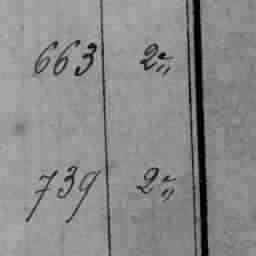 663 2 "
739 2 "